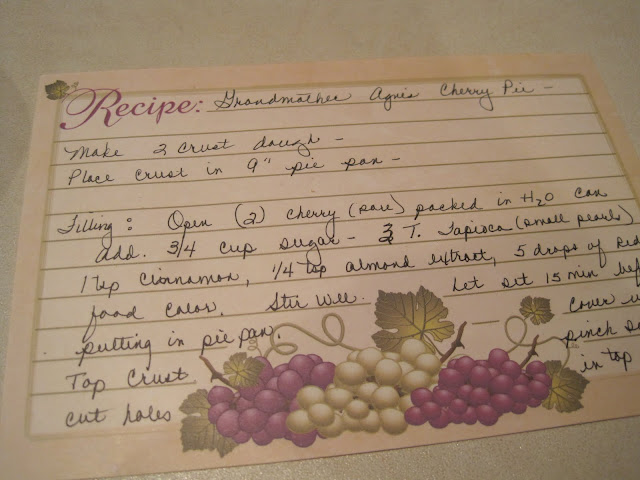 Recipe: Grandmother Agnis Cherry Pie -
Make 2 crust dough -
Place crust in 9" pie pan -
Filling: Open (2) cherry (sour) packed in H2O can
add. 3/4 cup sugar - 3 T. Tapioca (small pearls)
1 tsp cinnamon, 1/4 tsp almond extract, 5 drops of red
food color. Stir well. Let set 15 min
putting in pie pan. cover
Top Crust pinch
cut holes in top